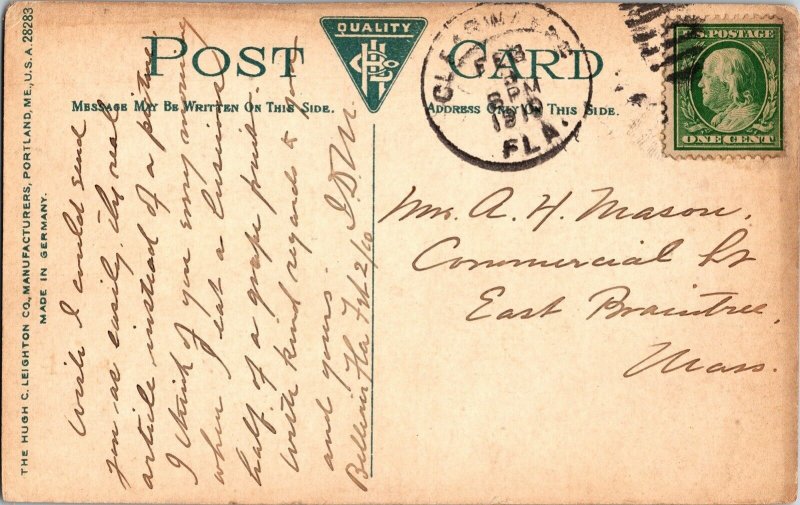 POST CARD
QUALITY
MESSAGE MAY BE WRITTEN ON THIS SIDE.
ADDRESS ONLY ON THIS SIDE.
THE HUGH C. LEIGHTON CO., MANUFACTURERS, PORTLAND, ME., U.S.A. 28283
MADE IN GERMANY.
CLEARWATER
FEB
PM
1910
FLA.
U.S. POSTAGE
ONE CENT
Wish I could send
you as easily the real
article instead of a picture
I think of you every morning
when I eat a luscious
half of a grape fruit.
With kind regards to you
and yours.
Belleair Fla Feb 2/10
Mrs. A. H. Mason,
Commercial St
East Braintree,
Mass.